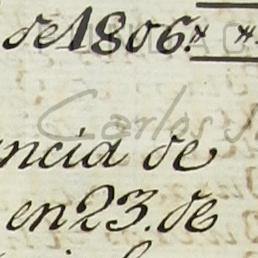 de 1806.
Carlos
ncia de
en 23. de